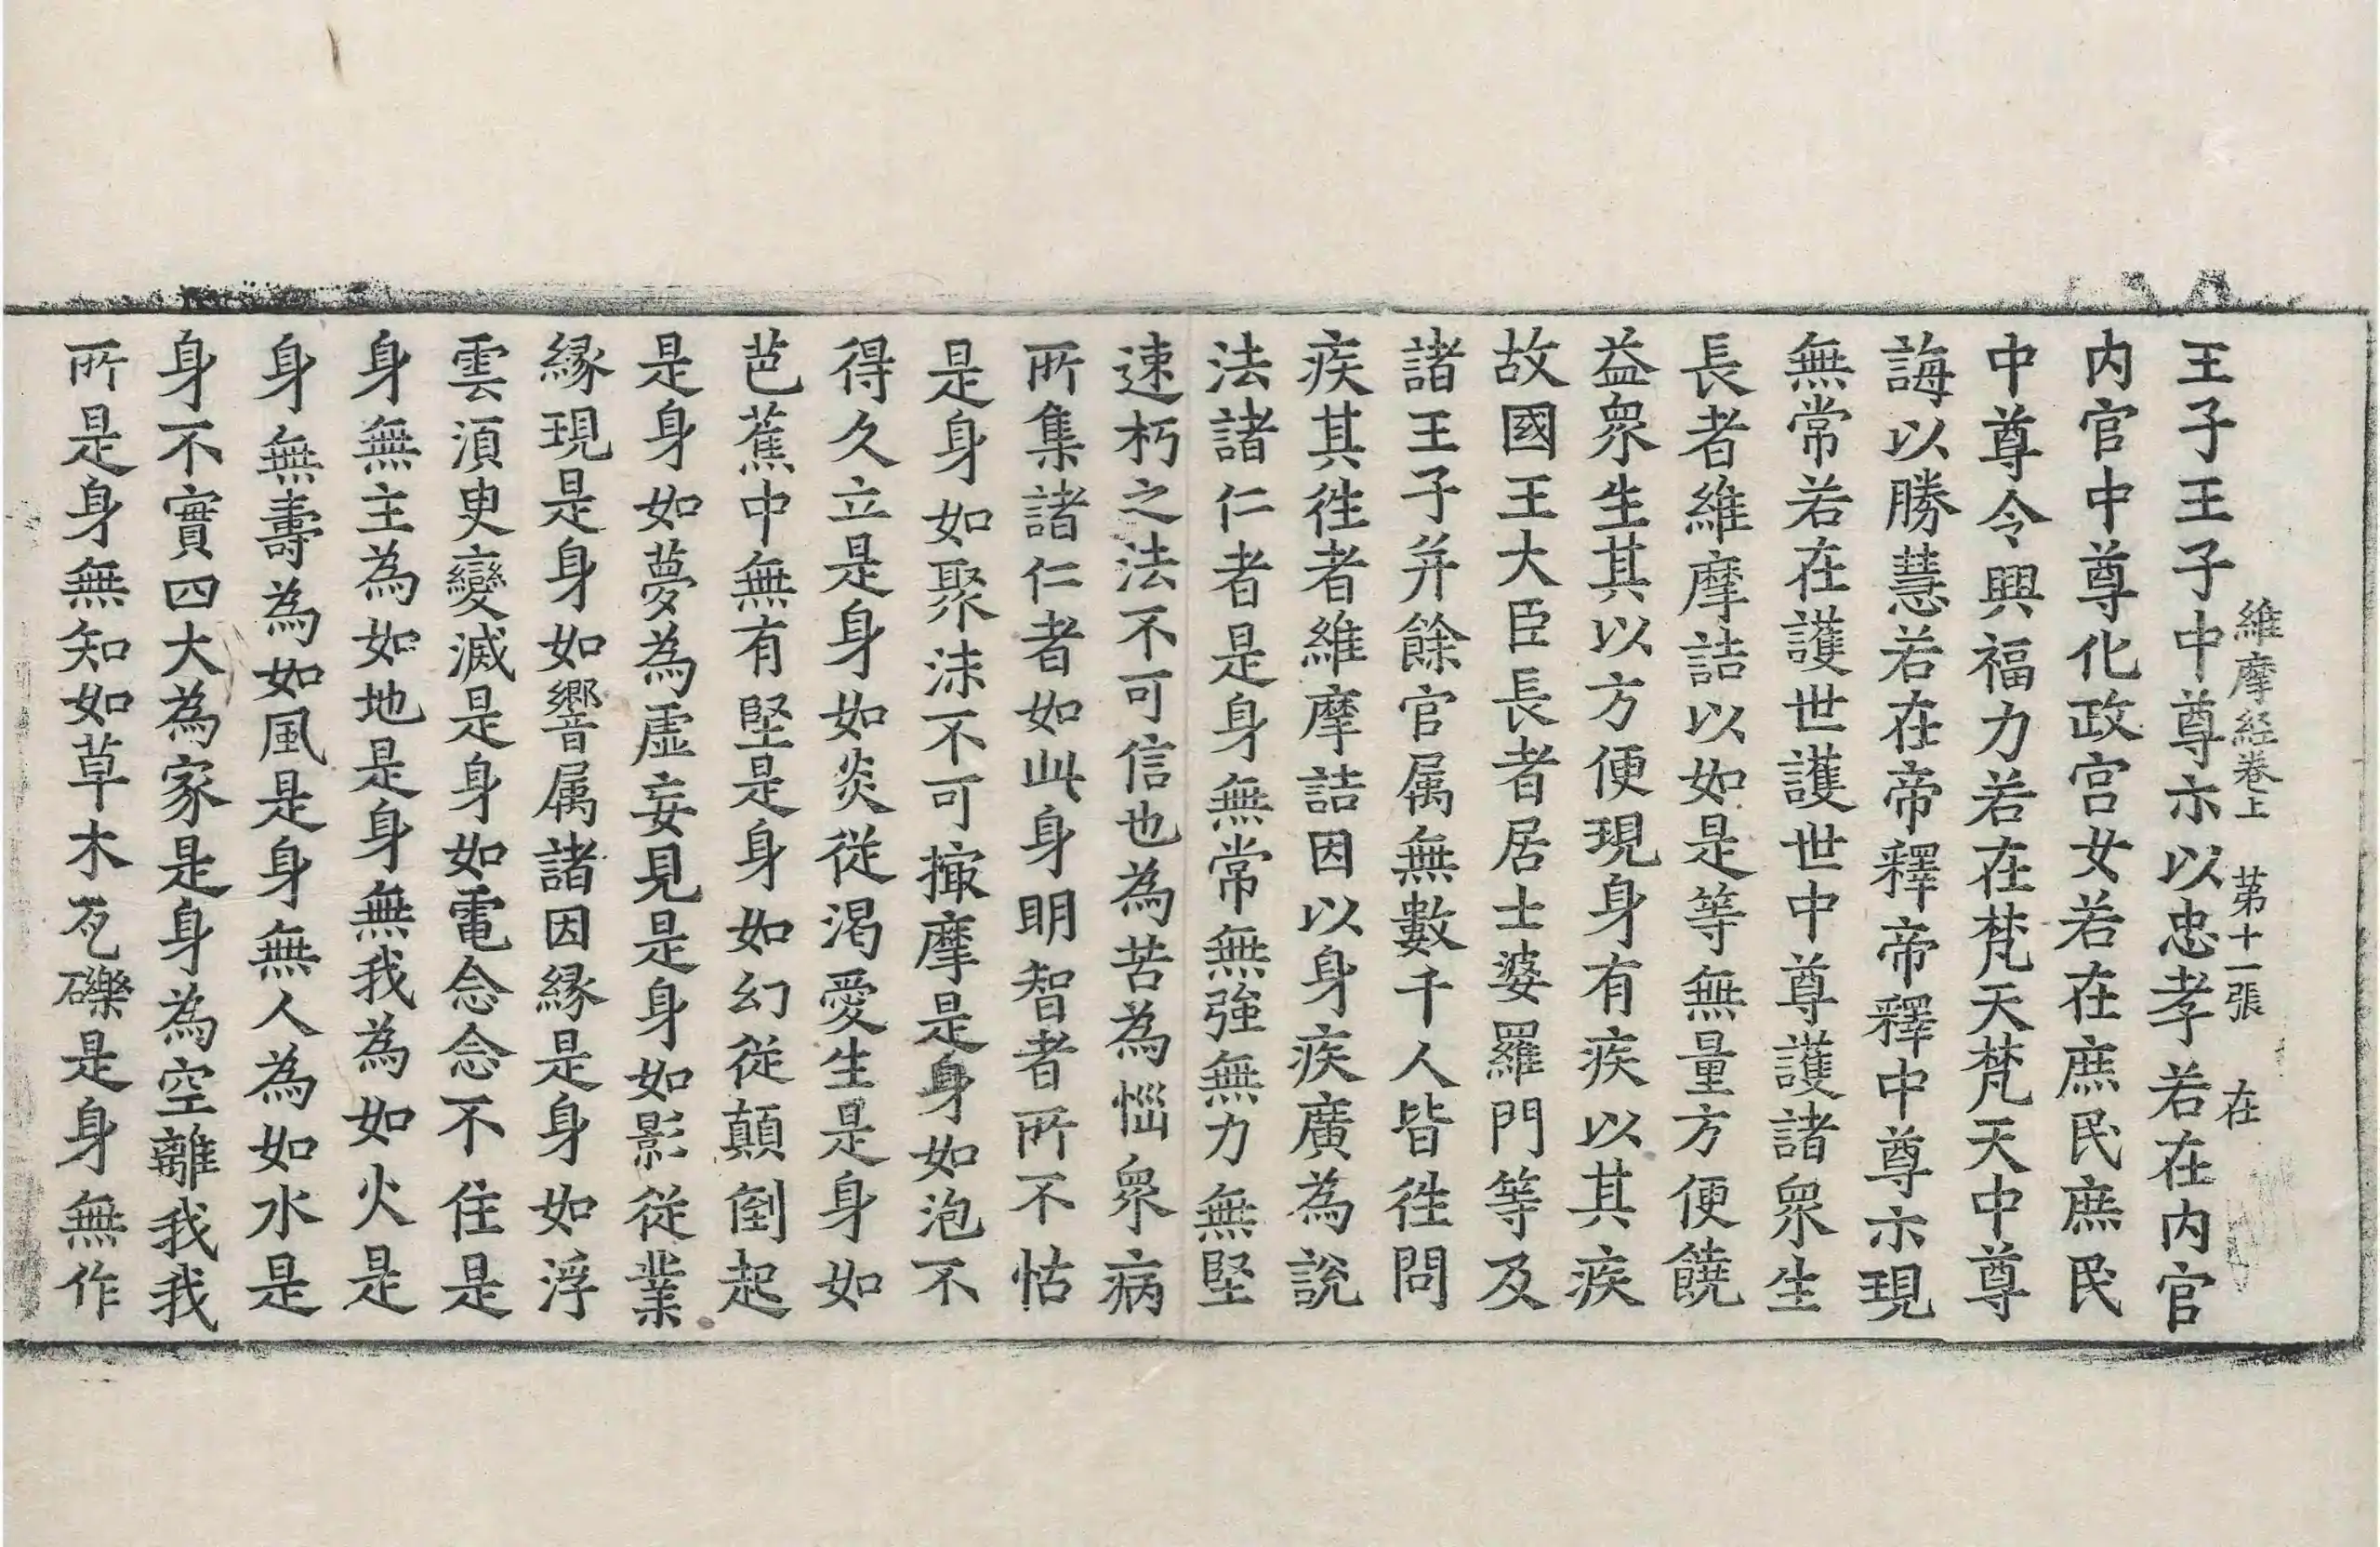 維摩經卷上 第十一張 在
王子王子中尊示以忠孝若在内官
内官中尊化政宫女若在庶民庶民
中尊令興福力若在梵天梵天中尊
誨以勝慧若在帝釋帝釋中尊示現
無常若在護世護世中尊護諸衆生
長者維摩詰以如是等無量方便饒
益衆生其以方便現身有疾以其疾
故國王大臣長者居士婆羅門等及
諸王子并餘官属無數千人皆徃問
疾其徃者維摩詰因以身疾廣為說
法諸仁者是身無常無強無力無堅
速朽之法不可信也為苦為惱衆病
所集諸仁者如此身明智者所不怙
是身如聚沫不可撮摩是身如泡不
得久立是身如炎從渴愛生是身如
芭蕉中無有堅是身如幻從顛倒起
是身如夢為虛妄見是身如影從業
緣現是身如響属諸因緣是身如浮
雲須臾變滅是身如電念念不住是
身無主為如地是身無我為如火是
身無壽為如風是身無人為如水是
身不實四大為家是身為空離我我
所是身無知如草木瓦礫是身無作